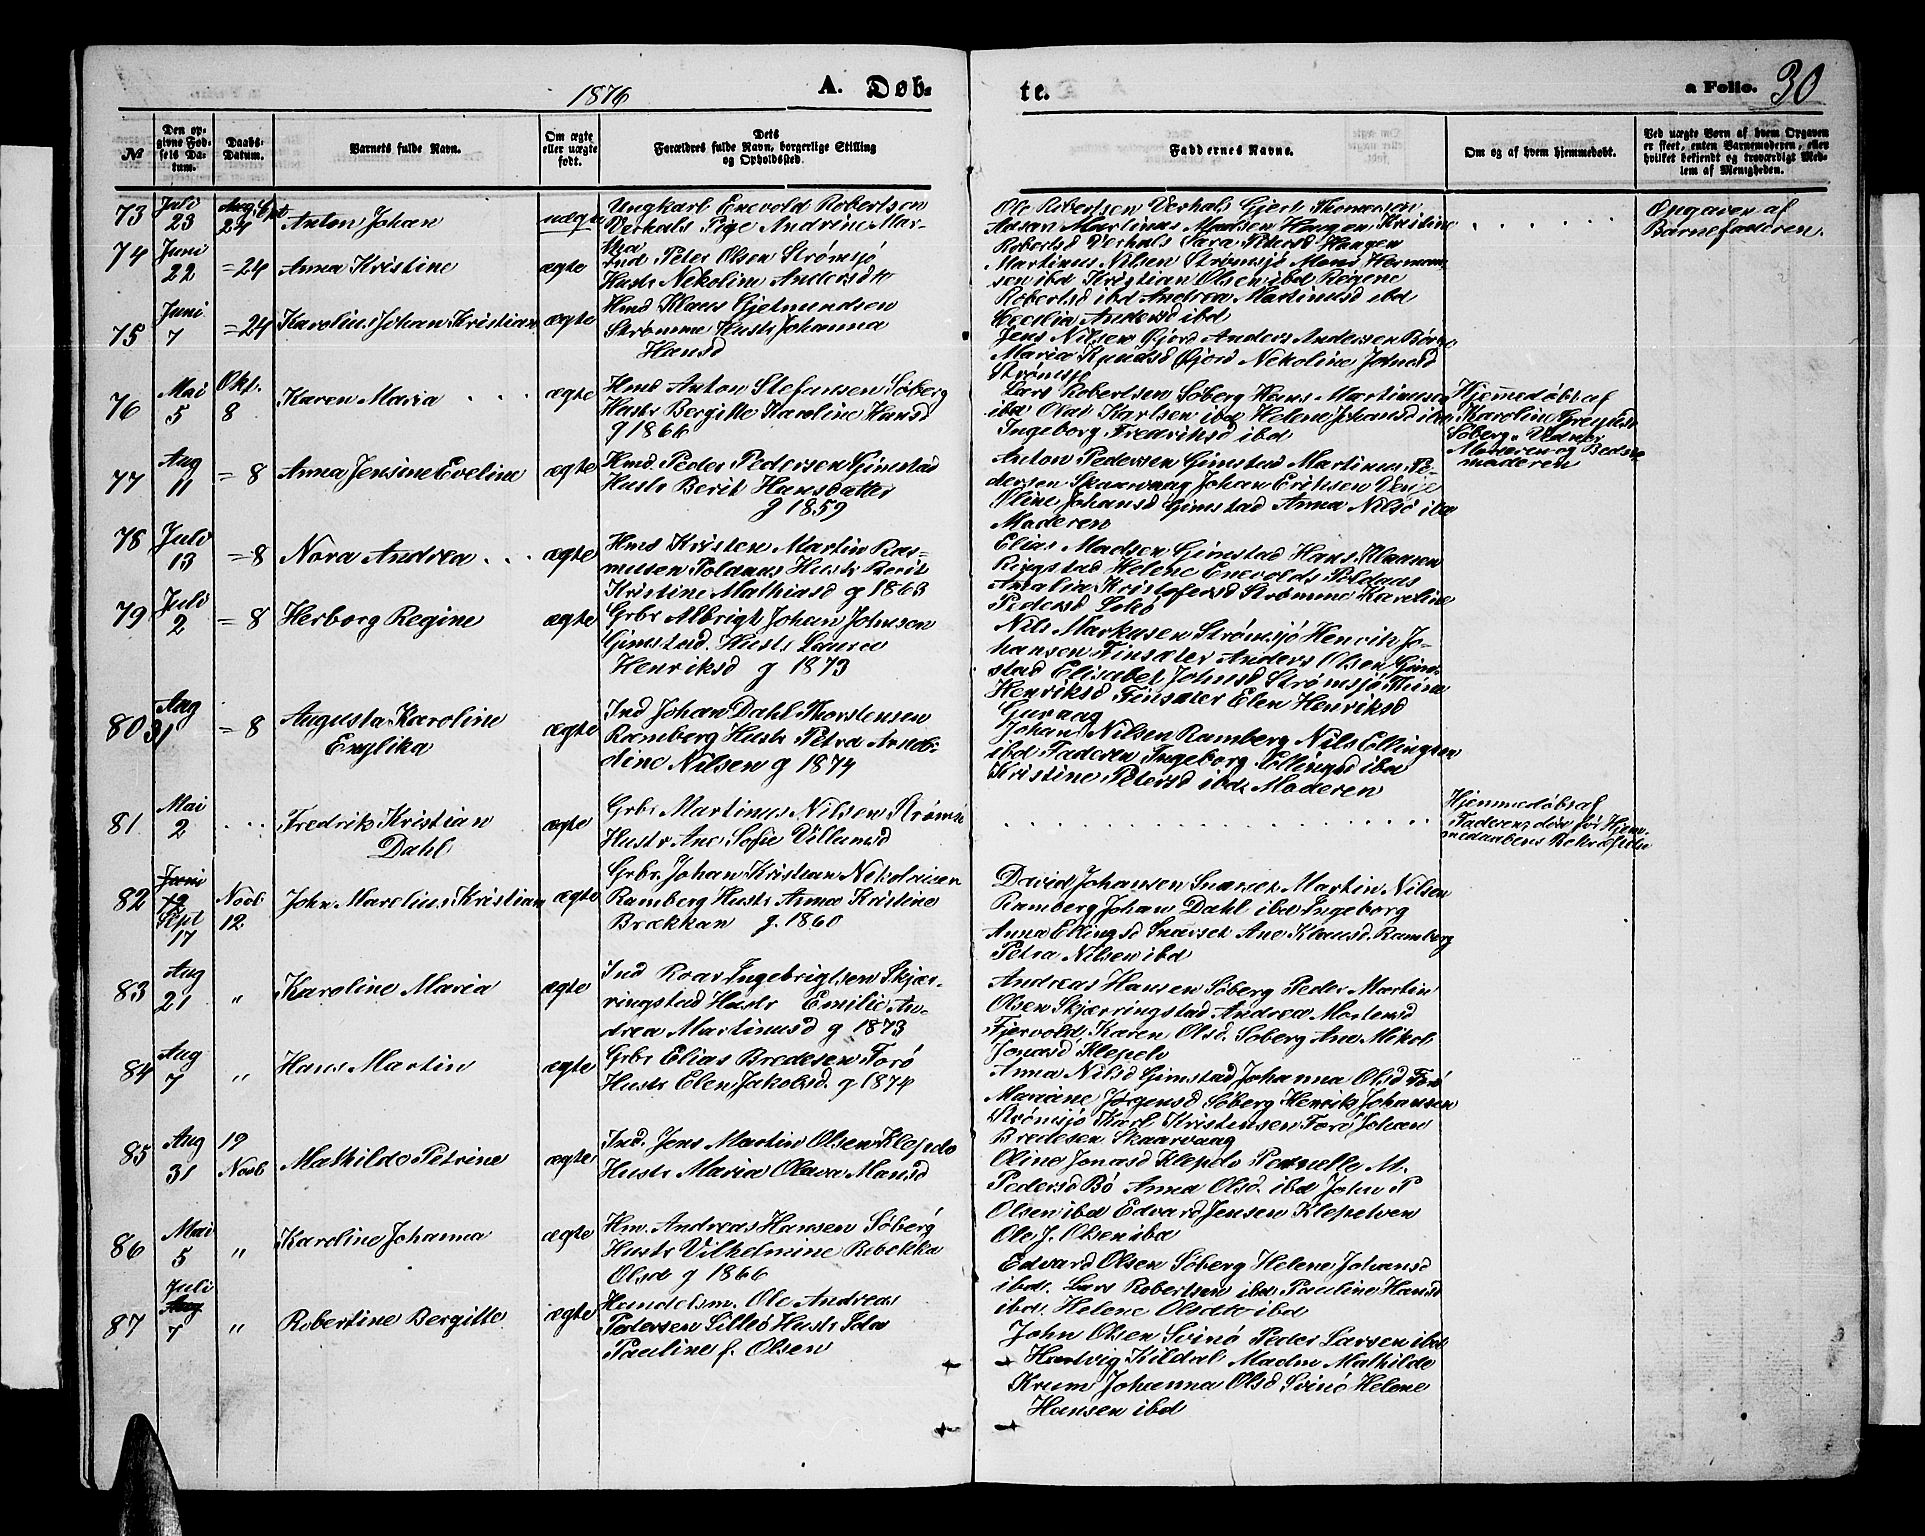 1876 A. Døb-
te.
a Folio. 30
№
Den op-
givne Fød-
sels Da-
tum.
Daabs-
Datum.
Barnets fulde Navn.
Om ægte
eller uægte
født.
Dets
Forældres fulde Navn, borgerlige Stilling
og Opholdssted.
Faddernes Navne.
Om og af hvem hjemmedøbt.
Ved uægte Børn af hvem Opgaven
er skeet, enten Barnemoderen, eller
hvilket bekjendt og troværdigt Med-
lem af Menigheden.
73 Juli 23 24 Anton Johan uægte
Ungkarl Enevold Robertsen
Verhals Pige Andrine Mar-
tha
Ole Robertsen Verhals Gjert Thomesen
Aasan Martinus Madsen Haugen Kristine
Robertsd Verhals Sara Pedersd Haugen
Opgaven af
Barnefaderen.
74 Juni 22 = 24 Anna Kristine ægte
Ind Peter Olsen Strømsjö
Hustr Nekoline Andersdtr
Martinus Nilsen Strømsjö Mons Herman-
sen ibd Kristian Olsen ibd Regine
Robertsd ibd Andrea Martinusd ibd
Cecilia Andersd ibd
75 Juni 7 = 24 Karolius Johan Kristian ægte
Hmd Klaus Gjetmundsen
Strømme Hustr Johanna
Hansd
Jens Nilsen Gjord Anders Andersen
Maria Knudsd Gjord Nekoline Johnsd
Strømsjö
76 Mai 5 Okt. 8 Karen Maria . . . ægte
Hmd Anton Stefansen Søberg
Hustr Bergitte Karoline Hansd
g 1866
Lars Robertsen Søberg Hans Martinussen
ibd Olai Karlsen ibd Helene Johansd ibd
Ingeborg Fredriksd ibd
Hjemmedøbt af
Karolin
Søberg. Vidner
Moderen og Bedste-
moderen
77 Aug 11 = 8 Anna Jensine Eveline ægte
Hmd. Peder Pedersen Gimstad
Hustr Berit Hansdatter
g 1859
Anton Pedersen Gimstad Martinus Pe-
dersen Skaarvaag Johan Eriksen Verje
Oline Johansd Gimstad Anna Nilsd ibd
Moderen
78 Juli 13 = 8 Nora Andrea . . . ægte
Hmd Kristen Martin Ras-
mussen Poldaas Hustr Berit
Kristine Mathiasd g 1863
Elias Madsen Gimstad Hans Klausen
Ringstad Helene Enevolds Poldaas
Amalia Kristofersd Strømme Karoline
Pedersd
79 Juli 2 = 8 Herborg Regine ægte
Grbr Albrigt Johan Johnsen
Gimstad. Hustr Laura
Henriksd g 1873
Nils Markusen Strømsjö Henrik Jo-
hansen Finsæter Anders Olsen Gim-
stad Elisabet Johnsd Strømsjö Thina
Henriksd Finsæter Elen Henriksd
Guvaag
80 Aug 31 = 8 Augusta Karoline
Englika ægte
Ind Johan Dahl Thorstensen
Ramberg Hustr Petra Arndi-
dine Nilsen g 1874
Johan Nilsen Ramberg Nils Ellingsen
ibd Faderen Ingeborg Ellingsd ibd
Kristine Petersd ibd. Moderen
81 Mai 2 . . . Fredrik Kristian
Dahl ægte
Grbr Martinus Nilsen Strømsö
Hustr Ane Sofie Villumsd
Hjemmedøbt af
Faderen, død før Hjem-
medaabens Bekræftelse
82 Juni Sept 17 Novb. 12 John Marelius Kristian ægte
Grbr. Johan Kristian Nikolaisen
Ramberg Hustr Anna Kristine
Brækkan g. 1860
David Johansen Snarset Martin Nilsen
Ramberg Johan Dahl ibd Ingeborg
Anna Ellingsd Snarset Ane Klausd. Ramberg
Petra Nilsen ibd
83 Aug 21 „ Karoline Maria ægte
Ind Roar Ingebrigtsen Skjær-
ringstad Hustr Emilie An-
drea Martinusd g 1873
Andreas Hansen Søberg Peder Martin
Olsen Skjærringstad Andrea Mortensd
Fjervold Karen Olsd. Søberg Ane Mikol
Jonasd Klepelv
84 Aug 7 „ Hans Martin ægte
Grbr Elias Bredesen Forö
Hustr Elen Jakobsd. g 1874
Anna Nilsd Gimstad Johanna Olsd Forö
Mariane Jørgensd Søberg Henrik Johansen
Strømsjö Karl Kristensen Forö Johan
Bredesen Skaarvaag
85 Aug 31 19 Novb Mathilde Petrine ægte
Ind. Jens Martin Olsen Klepelv
Hustr Maria Olava Mansd
Oline Jonasd Klepelv Pernelle M.
Pedersd Bö Anna Olsd. ibd John P
Olsen ibd Edvard Jensen Klepelven
Ole J. Olsen ibd
86 Mai 5 „ Karoline Johanna ægte
Hm. Andreas Hansen Søberg
Hustr Vilhelmine Rebekka
Olsd g 1866
Edvard Olsen Søberg Helene Johansd
ibd. Lars Robertsen ibd Pauline Hansd
ibd. Helene Olsdtr ibd
87 Juli 7 „ Robertine Bergitte ægte
Handelsm. Ole Andreas
Pedersen Lillö Hustr Ida
Pauline f. Olsen
John Olsen Svinö Peder Larsen ibd
Hartvig Kildal Madm Mathilde
Krum Johanna Olsd Svinö Helene
Hansen ibd